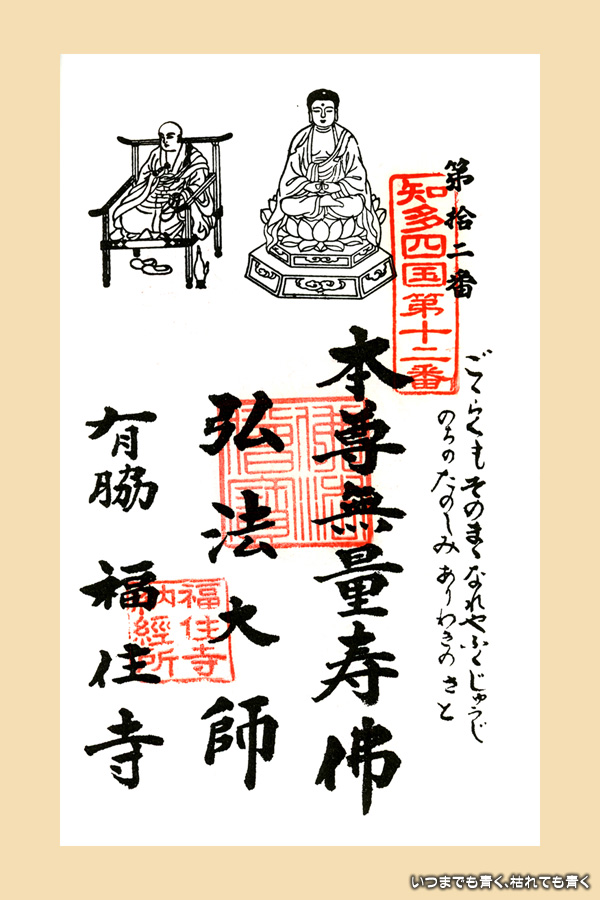 第拾二番
知多四国第十二番
ごくらくも そのまゝなれやふくじゅうじ
のちのたのしみ ありわきのさと
本尊無量寿佛
佛法
僧寶
弘法大師
有脇 福住寺
福住寺
納経所
いつまでも青く、枯れても青く